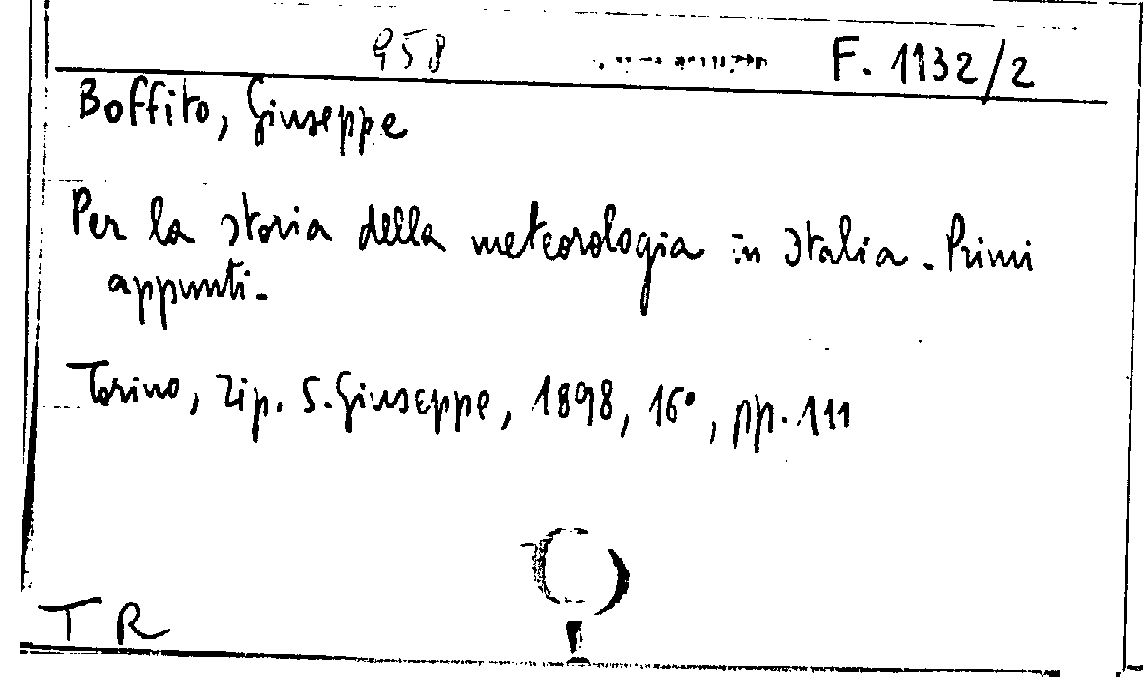 958 F. 1132/2
Boffito, Giuseppe
Per la storia della meteorologia in Italia - Primi
appunti -
Torino, Tip. S. Giuseppe, 1898, 16°, pp. 111
T R